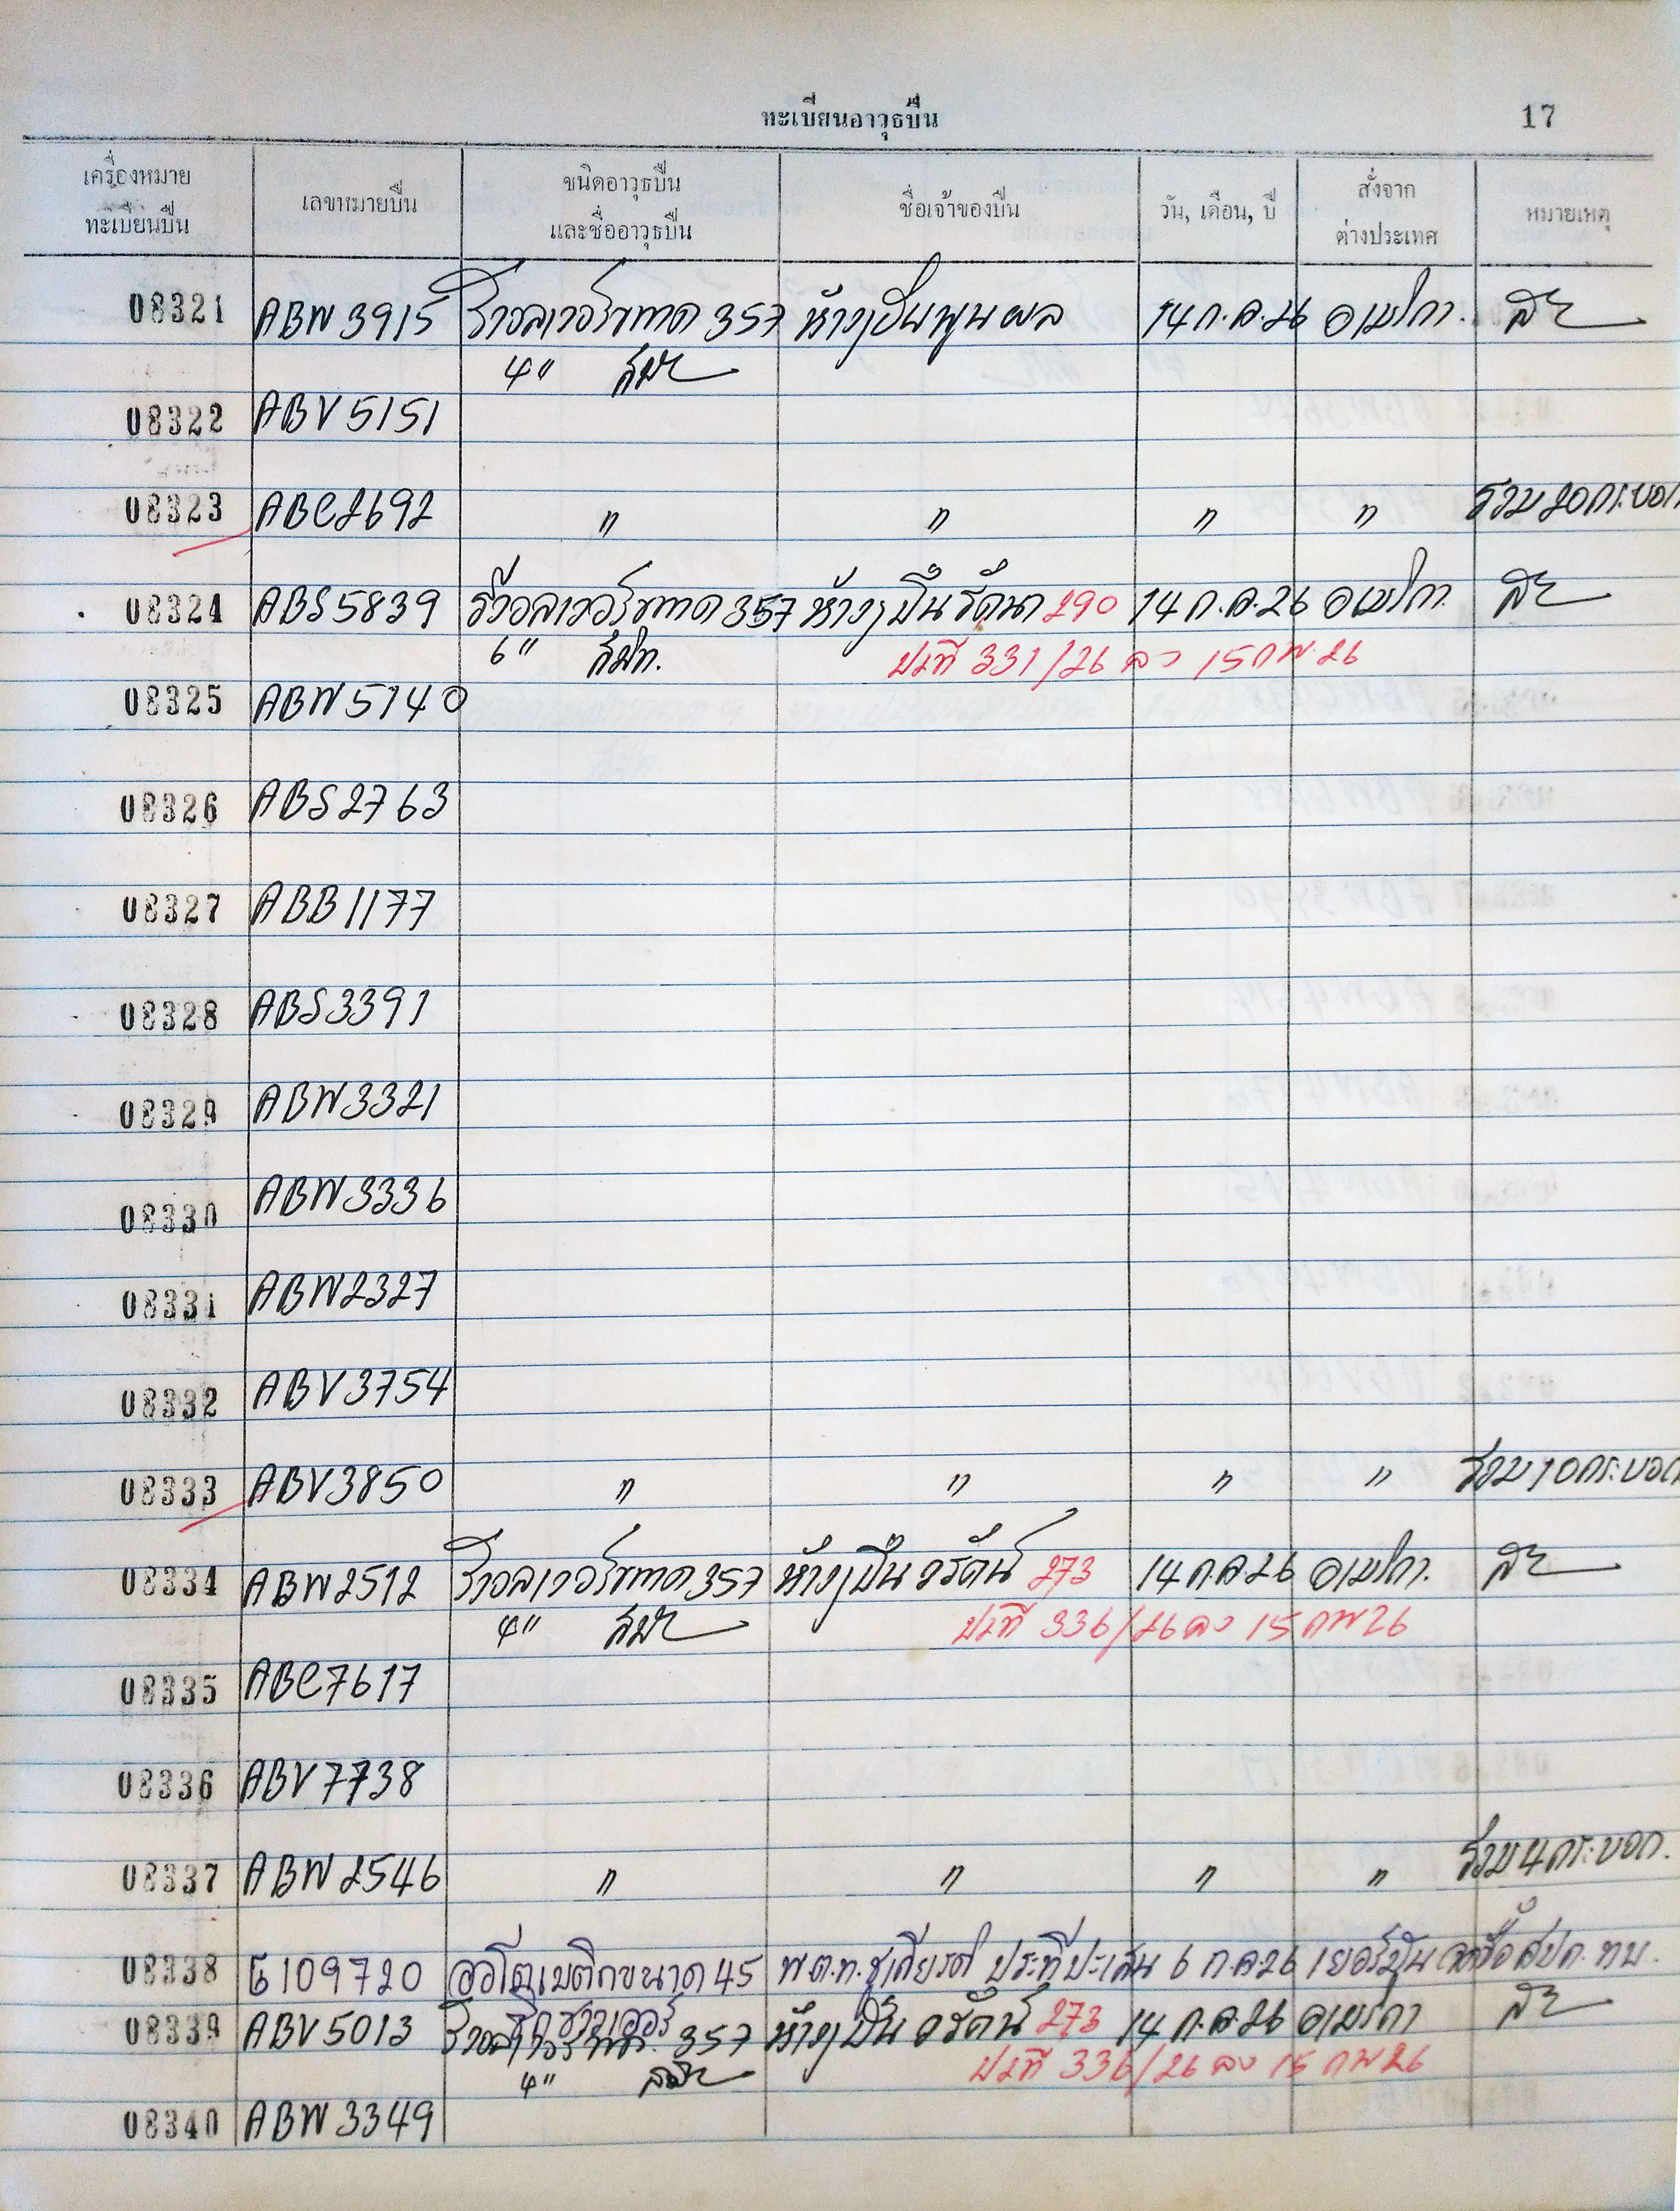 ทะเบียนอาวุธปืน 17
เครื่องหมาย ทะเบียนปืน เลขหมายปืน ชนิดอาวุธปืน และชื่ออาวุธปืน ชื่อเจ้าของปืน วัน, เดือน, ปี สั่งจาก ต่างประเทศ หมายเหตุ
08321 ABW 3915 รีวอลเวอร์ขนาด 357 ห้างปืนพูนผล 14 ก.ค.26 อเมริกา.
4"
08322 ABV 5151
08323 ABC2692 " " " " รวม 20 กระบอก
08324 ABS5839 รีวอลเวอร์ขนาด 357 ห้างปืน รัตนา 290 14 ก.ค.26 อเมริกา.
6" 331/26 ลว 15 กพ 26
08325 ABW5140
08326 ABS2763
08327 ABB1177
08328 ABS3391
08329 ABW3321
08330 ABW3336
08331 ABW2327
08332 ABV3754
08333 ABV3850 " " " " รวม 10 กระบอก
08334 ABW2512 รีวอลเวอร์ขนาด 357 ห้างปืน วรัตน์ 273 14 ก.ค 26 อเมริกา.
4" 336/26 ลว 15 กพ 26
08335 ABC7617
08336 ABV7738
08337 ABW 2546 " " " " รวม 4 กระบอก.
08338 109720 ออโตเมติกขนาด 45 พ.ต.ท.ชูเกียรติ ประทีปะเสน 6 ก.ค 26 เยอรมัน
08339 ABV5013 357 ห้างปืน วรัตน์ 273 14 ก.ค.26 อเมริกา
4" 336/26 ลว 15 กพ 26
08340 ABW 3349